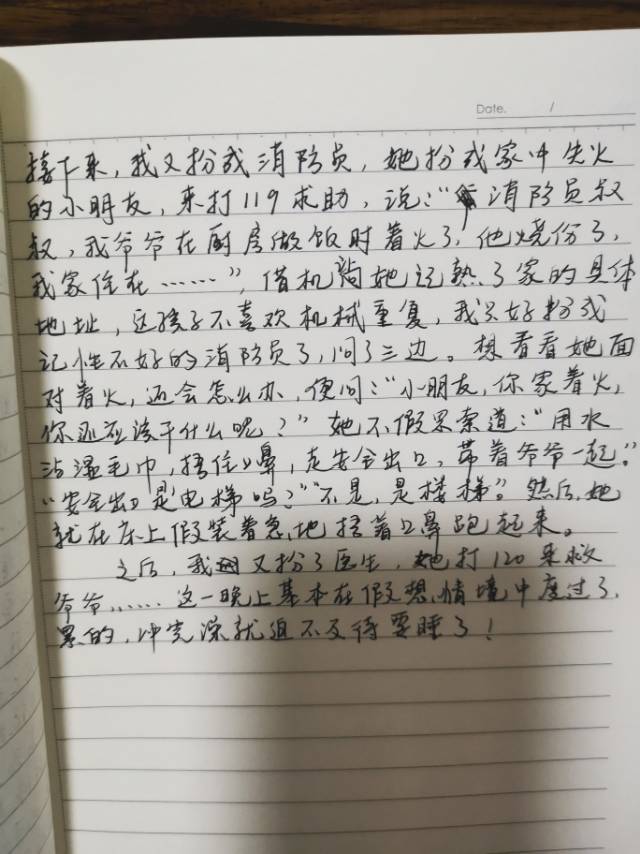 Date.      /
接下来,我又扮成消防员,她扮成家中失火
的小朋友,来打119求助,说:“消防员叔
叔,我爷爷在厨房做饭时着火了,他烧伤了,
我家住在……”,借机让她记熟了家的具体
地址,这孩子不喜欢机械重复,我只好扮成
记性不好的消防员了,问了三边。想看看她面
对着火,还会怎么办,便问:“小朋友,你家着火,
你还应该干什么呢?”她不假思索道:“用水
沾湿毛巾,捂住口鼻,走安全出口,带着爷爷一起。”
“安全出口是电梯吗?”“不是,是楼梯”。然后,她
就在床上假装着急地捂着口鼻跑起来。
之后,我又扮了医生,她打120来救
爷爷……这一晚上基本在假想情境中度过了,
累的,冲完澡就迫不及待要睡了!